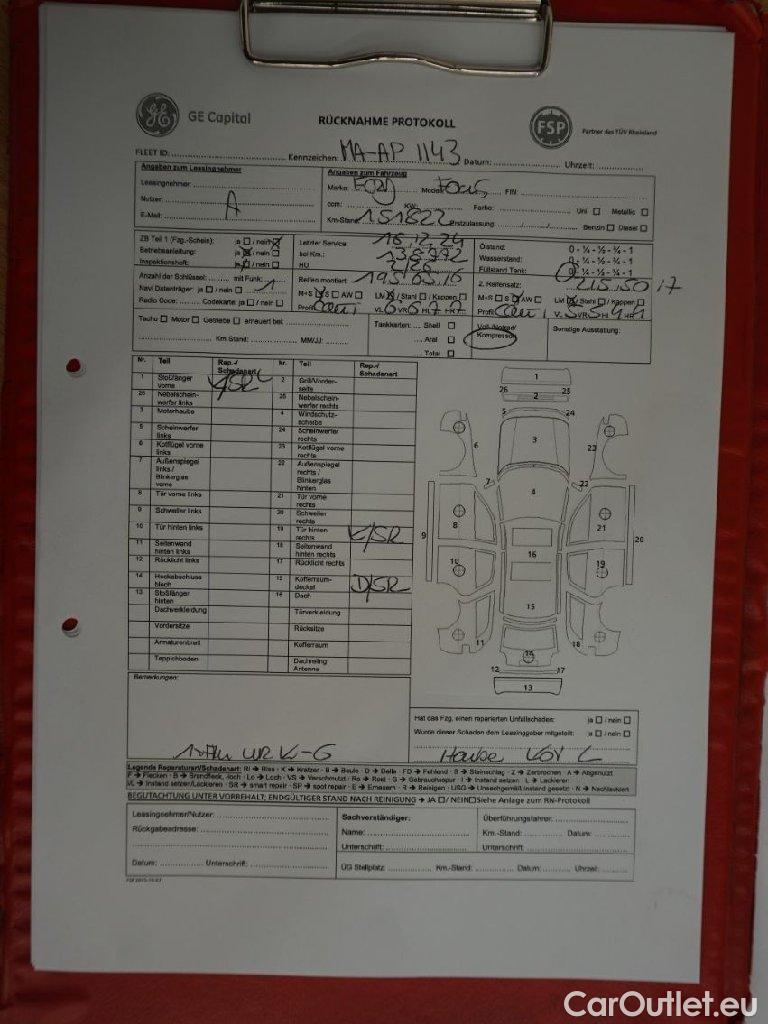 GE Capital
RÜCKNAHME PROTOKOLL
FSP Partner des TÜV Rheinland
FLEET ID: Kennzeichen: MA-AP 1143 Datum: Uhrzeit:
Angaben zum Leasingnehmer
Leasingnehmer:
Nutzer: A
E-Mail:
Angaben zum Fahrzeug
Marke: FORD Modell: FOCUS FIN:
ccm: KW: Farbe: Uni Metallic
Km-Stand: 151822 Erstzulassung Benzin Diesel
ZB Teil 1 (Fzg.-Schein): ja / nein
Betriebsanleitung: ja / nein
Inspektionsheft: ja / nein
Letzter Service: 16.12.24
bei Km.:
HU
Ölstand: 0 - ¼ - ½ - ¾ - 1
Wasserstand: 0 - ¼ - ½ - ¾ - 1
Füllstand Tank: 0 - ¼ - ½ - ¾ - 1
Anzahl der Schlüssel: mit Funk: 1
Navi Datenträger: ja / nein
Radio Code: Codekarte ja / nein
Reifen montiert 195.65.16
M+S S AW LM / Stahl / Kappen
Profil Conti VL 6 VR 6 HL 7 HR 7
2. Reifensatz: 215.50.17
M+S S AW LM / Stahl / Kappen
Profil Conti VL 5 VR 5 HL 4 HR 4
Tacho Motor Getriebe erneuert bei:
Km Stand: MM/JJ:
Tankkarten: Shell
Aral
Total
Voll-/Notrad/
Kompressor
Sonstige Ausstattung:
Nr. Teil Rep./ Schadenart Nr. Teil Rep./ Schadenart
1 Stoßfänger vorne K/SR L 2 Grill/Vorderseite
26 Nebelscheinwerfer links 25 Nebelscheinwerfer rechts
3 Motorhaube 4 Windschutzscheibe
5 Scheinwerfer links 24 Scheinwerfer rechts
6 Kotflügel vorne links 23 Kotflügel vorne rechts
7 Außenspiegel links / Blinkerglas vorne 22 Außenspiegel rechts / Blinkerglas hinten
8 Tür vorne links 21 Tür vorne rechts
9 Schweller links 20 Schweller rechts
10 Tür hinten links 19 Tür hinten rechts K/SR
11 Seitenwand hinten links 18 Seitenwand hinten rechts
12 Rücklicht links 17 Rücklicht rechts
14 Heckabschlussblech 15 Kofferraumdeckel D/SR
13 Stoßfänger hinten 16 Dach
Dachverkleidung Türverkleidung
Vordersitze Rücksitze
Armaturenbrett Kofferraum
Teppichboden Dachreling Antenne
1
26 25
2
5 24
3
6 23
7 22
8 21
9 20
16
10 19
15
11 18
14
12 17
13
Bemerkungen:
Hat das Fzg. einen reparierten Unfallschaden: ja / nein
Wurde dieser Schaden dem Leasinggeber mitgeteilt: ja / nein
Legende Reparaturen/Schadenart: RI → Riss · K → Kratzer · B → Beule · D → Delle · FD → Fehlend · S → Steinschlag · Z → Zerbrochen · A → Abgenutzt
F → Flecken · B → Brandfleck, -loch · Lo → Loch · VS → Verschmutzt · Ro → Rost · G → Gebrauchsspur · I → Instand setzen · L → Lackieren
I/L → Instand setzen/Lackieren · SR → smart repair · SP → spot repair · E → Ersetzen · R → Reinigen · USG → Unsachgemäß instand gesetzt · N → Nachlackiert
BEGUTACHTUNG UNTER VORBEHALT; ENDGÜLTIGER STAND NACH REINIGUNG → JA / NEIN Siehe Anlage zum RN-Protokoll
Leasingnehmer/Nutzer:
Rückgabeadresse:
Datum: Unterschrift:
Sachverständiger:
Name:
Unterschrift:
Überführungsfahrer:
Km.-Stand: Datum:
Unterschrift:
ÜG Stellplatz: Km.-Stand: Datum: Uhrzeit:
CarOutlet.eu